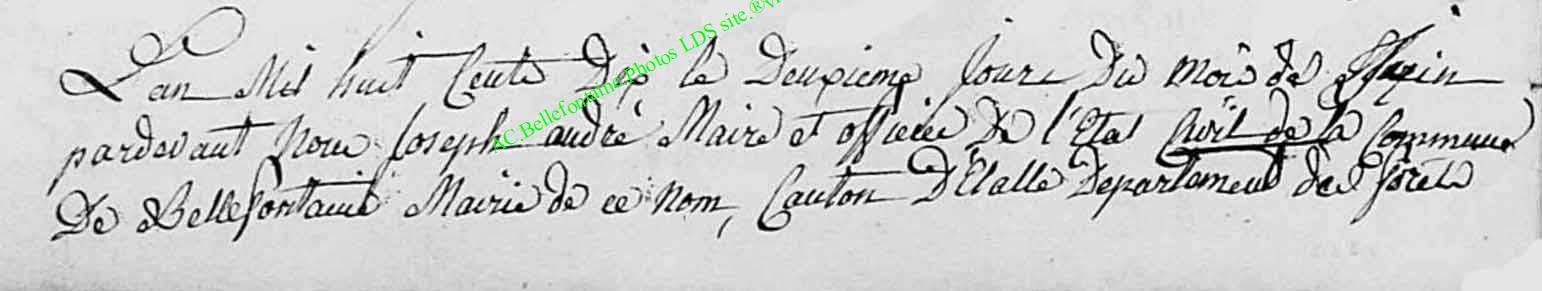 L'an Mil huit Cents Dix le Deuxieme Jour Du mois de
pardevant Nous Joseph andré Maire et officier De l'Etat Civil de la Commune
De Bellefontaine Mairie de ce nom, Canton D'Etalle Departement des forêts
AC Bellefontaine Photos LDS site.®